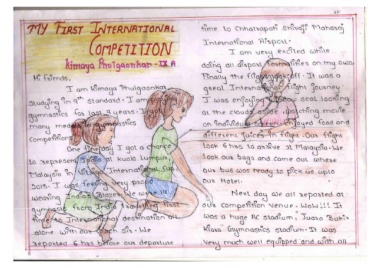 MY FIRST INTERNATIONAL
COMPETITION
Kimaya Phulgaonkar - IX A
Hi friends,
I am Kimaya Phulgaonkar
studying in 9th standard. I am
gymnastics for last 9 years.
many medals gymnastics
Competitions
One fine day I got a chance
to represent India at Kuala Lumpur,
Malaysia in International
I was feeling very
wearing Indian Blazer. We were six
gymnasts from India travelling first
time to International destination all
alone with our coach Sir. We
reported 6 hrs before our departure
time to Chhatrapati Shivaji Maharaj
International Airport.
I am very excited while
doing all airport formalities on my own.
Finally the flight took off. It was a
great International flight journey.
I was enjoying seat looking
at the clouds watching movie
on individual screen, enjoyed food and
different juices in flight. Our flight
took 6 hrs to arrive at Malaysia. We
took our bags and come out where
our bus was ready to pick us upto
our Hotel.
Next day we all reported at
our Competition venue. Wow!!! It
was a huge AC stadium, Juara Bukit
Kiara Gymnastics stadium. It was
very much well equipped and with all